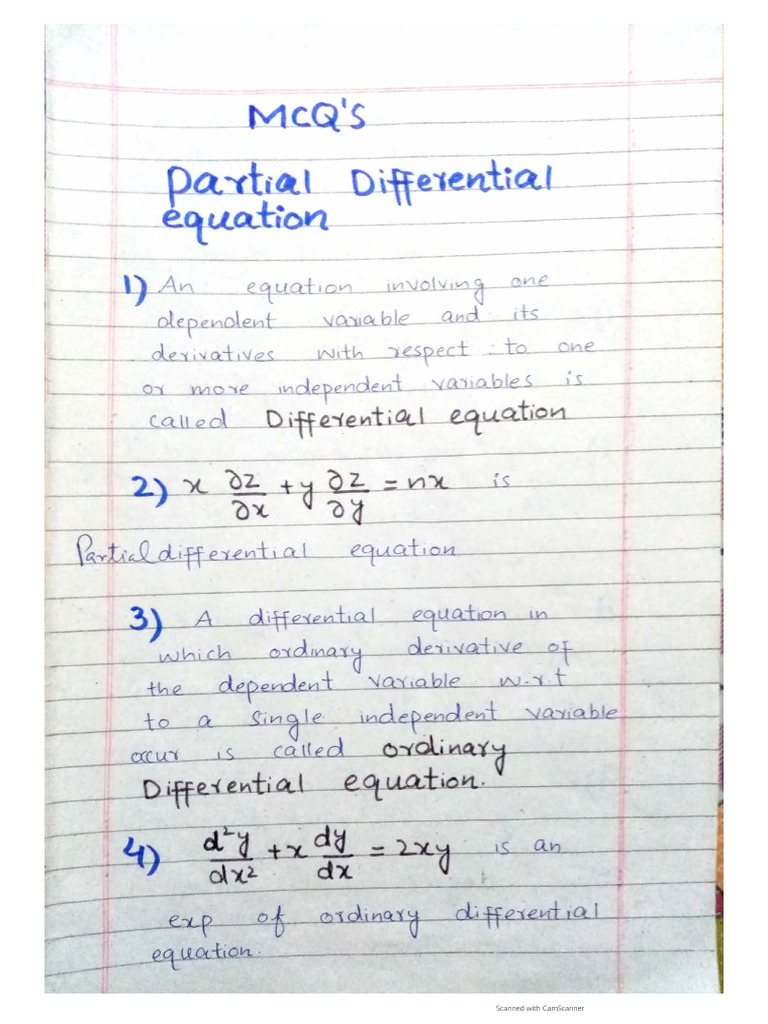 MCQ'S
Partial Differential
equation
1) An equation involving one
dependent variable and its
derivatives with respect to one
or more independent variables is
called Differential equation
2) x ∂z/∂x + y ∂z/∂y = nx is
Partial differential equation
3) A differential equation in
which ordinary derivative of
the dependent variable w.r.t
to a single independent variable
occur is called ordinary
Differential equation.
4) d²y/dx² + x dy/dx = 2xy is an
exp of ordinary differential
equation.
Scanned with CamScanner